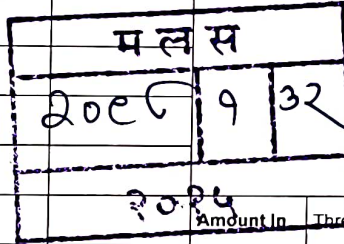 म ल स
२०९८ १ ३२
२०२५
Amount In Thre